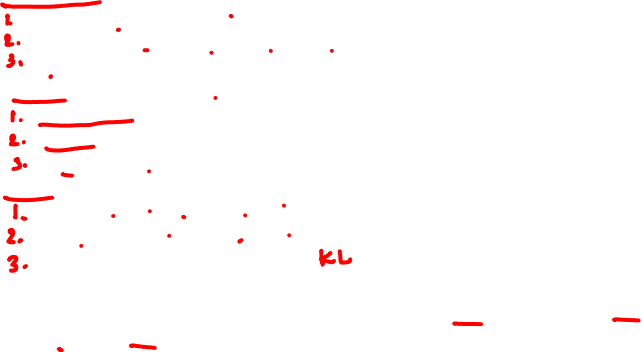 1.
2.
3.
1.
2.
3.
1.
2.
3. KL